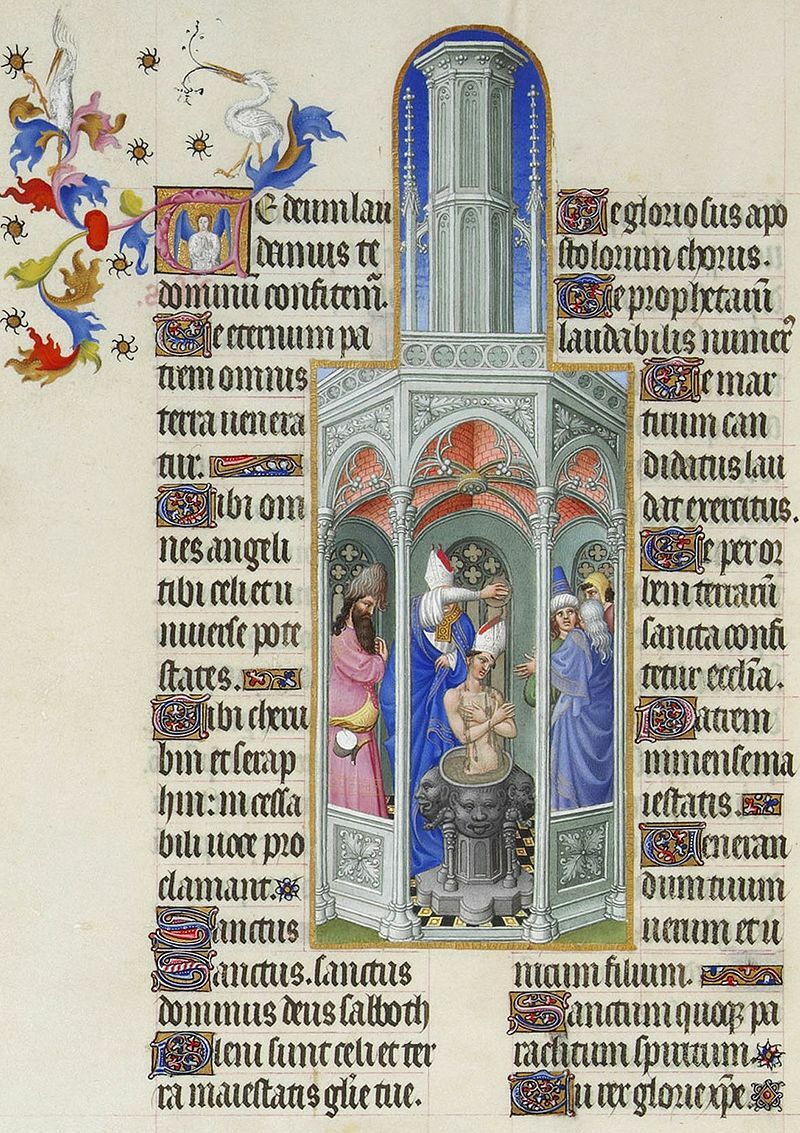 Te deum lau
damus te
dominū confitem̄.
Te eternum pa
trem omnis
terra uenera
tur.
Tibi om
nes angeli
tibi celi et u
niuerse pote
states.
Tibi cheru
bin et serap
hin: incessa
bili uoce pro
clamant.
Sanctus
Sanctus. sanctus
dominus deus sabboth
Pleni sunt celi et ter
ra maiestatis gl̄ie tue.
Te gloriosus apo
stolorum chorus.
Te prophetarū
laudabilis numerꝰ
Te mar
tirum can
didatus lau
dat exercitus.
Te per or
bem terrarū
sancta confi
tetur eccl̄ia.
Patrem
immense ma
iestatis.
Ueneran
dum tuum
uerum et u
nicum filium.
Sanctum quoqꝫ pa
raclitum spiritum.
Tu rex glorie xp̄e.